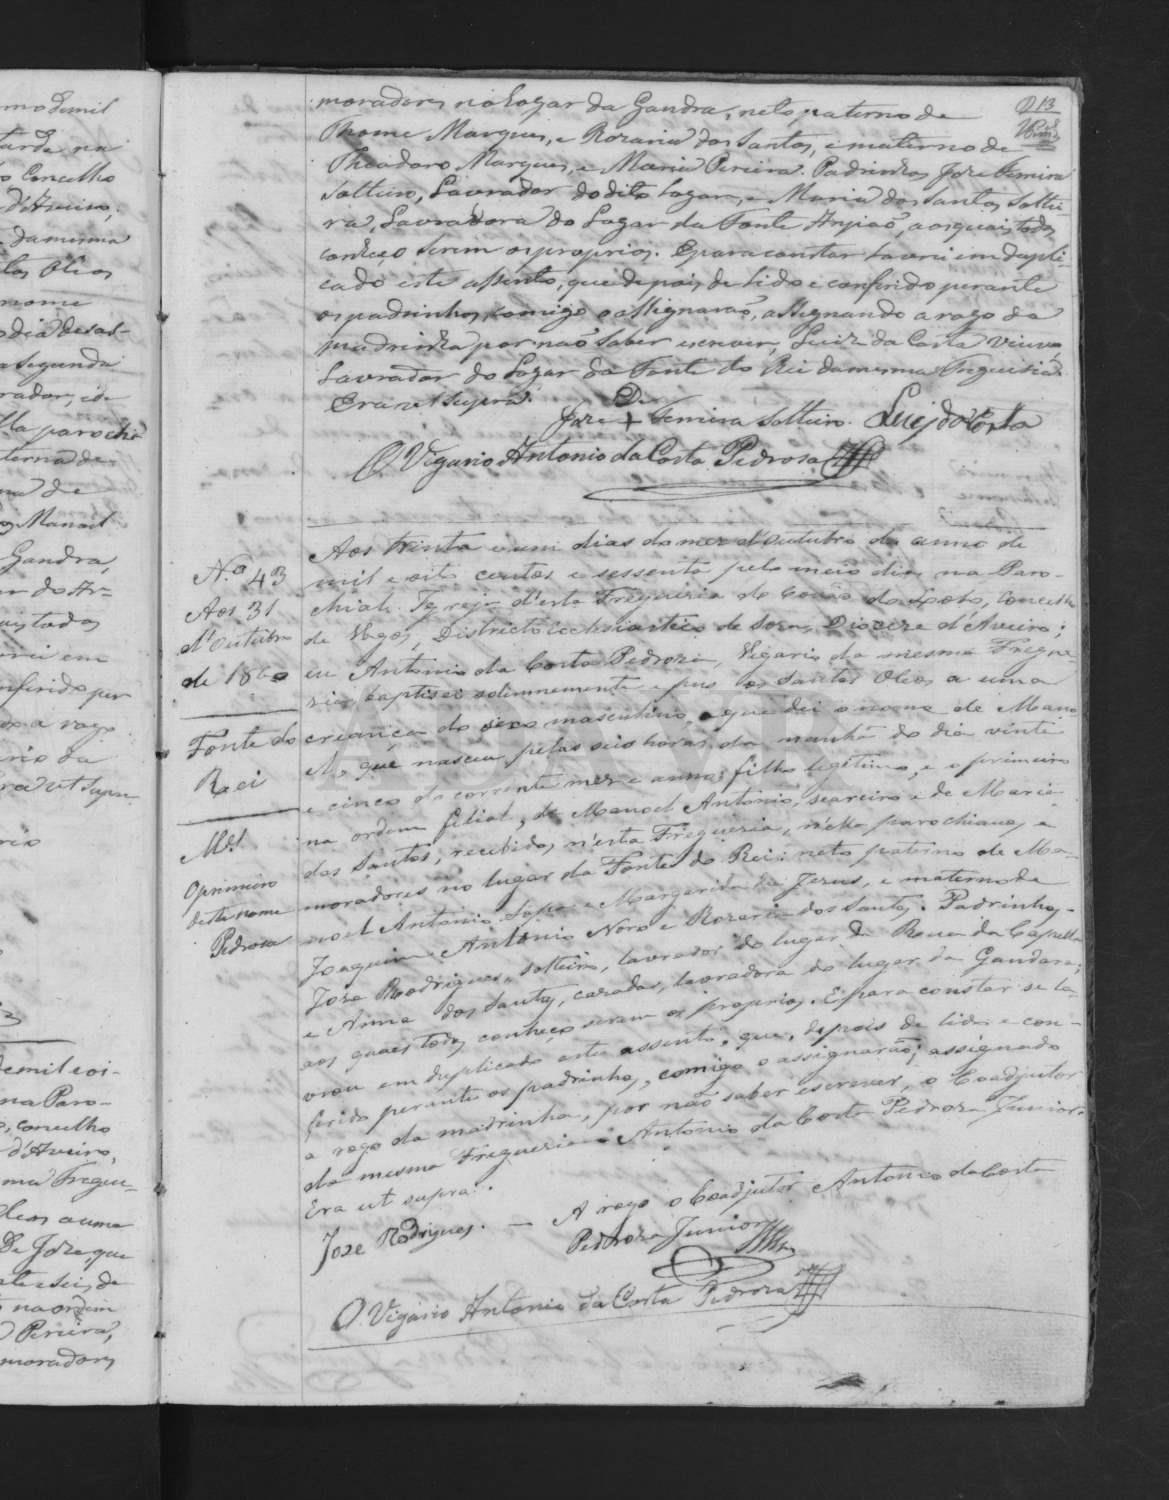 213
moradores no Logar da Gandra, neto paterno de
Thome Marques, e Rozaria dos Santos, e materno de
Theodoro Marques, e Maria Pereira. Padrinhos Joze Ferreira
Solteiro, Lavrador do dito Logar, e Maria dos Santos Soltei-
ra, Lavradora do Logar da Fonte Anjiaõ, aos quais todos
conheço serem os proprios. E para constar lavrei em dupli-
cado este assento, que depois de lido e conferido perante
os padrinhos, comigo o assignaraõ, assignando a rogo da
madrinha por naõ saber escrever, Luiz da Costa Viuvo,
Lavrador do Logar da Fonte do Rei da mesma Freguisia.
Era ut supra.
De
Joze + Ferreira Solteiro. Luiz da Costa
O Vigario Antonio da Costa Pedrosa
N.º 43
Aos 31
d'Outubro
de 1860
Fonte do
Rei
M.el
O primeiro
deste nome
Pedrosa
Aos trinta e um dias do mez d'Outubro do anno de
mil e oito centos e sessenta pelo meio dia na Paro-
chial Igreja d'esta Freguezia de Covaõ do Lobo, Concelho
de Vagos, Districto Ecclesiastico de Soza, Diocese d'Aveiro;
eu Antonio da Costa Pedroza, Vigario da mesma Fregue-
zia, baptisei solemnemente e puz os Santos Oleos a uma
creança do sexo masculino, a que dei o nome de Mano
el, que nasceu pelas seis horas da manhã do dia vinte
e cinco do corrente mez e anno; filho legitimo, e o primeiro
na ordem filial, de Manoel Antonio, seareiro e de Maria
dos Santos, recebidos n'esta Freguezia, n'ella parochianos, e
moradores no lugar da Fonte do Rei: neto paterno de Ma-
noel Antonio Sapo e Margarida de Jezus, e materno de
Joaquim Antonio Novo e Rozaria dos Santos. Padrinhos-
Joze Rodrigues, solteiro, lavrador do lugar da Rua da Capella
e Anna dos Santos, cazada, lavradora do lugar da Gandara;
aos quaes todos conheço serem os proprios. E para constar se la-
vrou em duplicado este assento, que, depois de lido e con-
ferido perante os padrinhos, comigo o assignaraõ; assignado
a rogo da madrinha, por naõ saber escrever, o Coadjutor
da mesma Freguezia Antonio da Costa Pedroza Junior.
Era ut supra.
Joze Rodrigues. — A rogo o Coadjutor Antonio da Costa
Pedroza Junior
O Vigario Antonio da Costa Pedroza
ADAVR